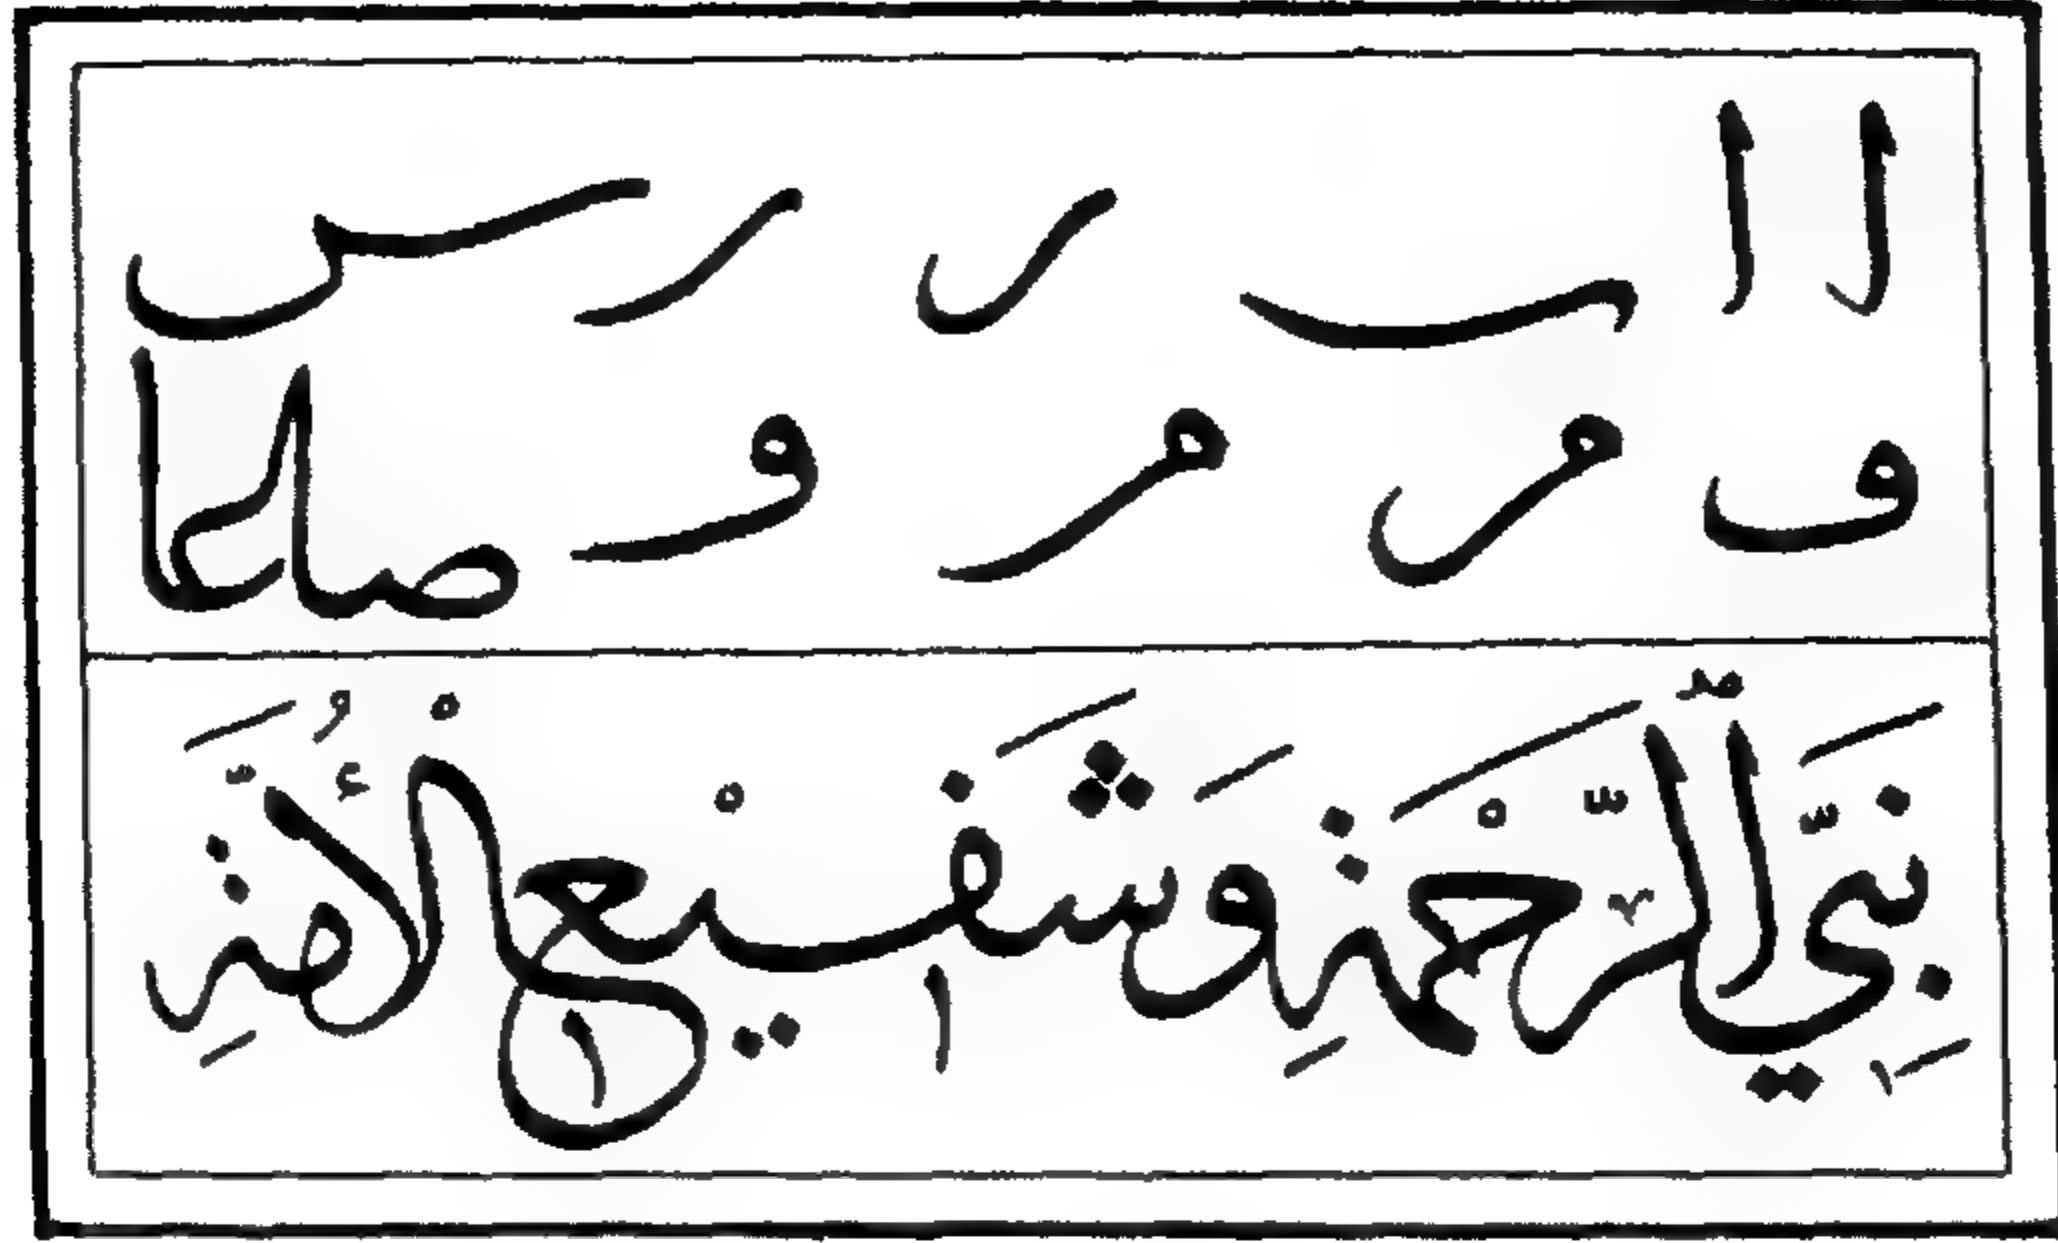 ا ا ب ر ر س
و م م و صلها
نَبِيِّ الرَّحْمَةِ وَشَفِيْعِ الْأُمَّةِ